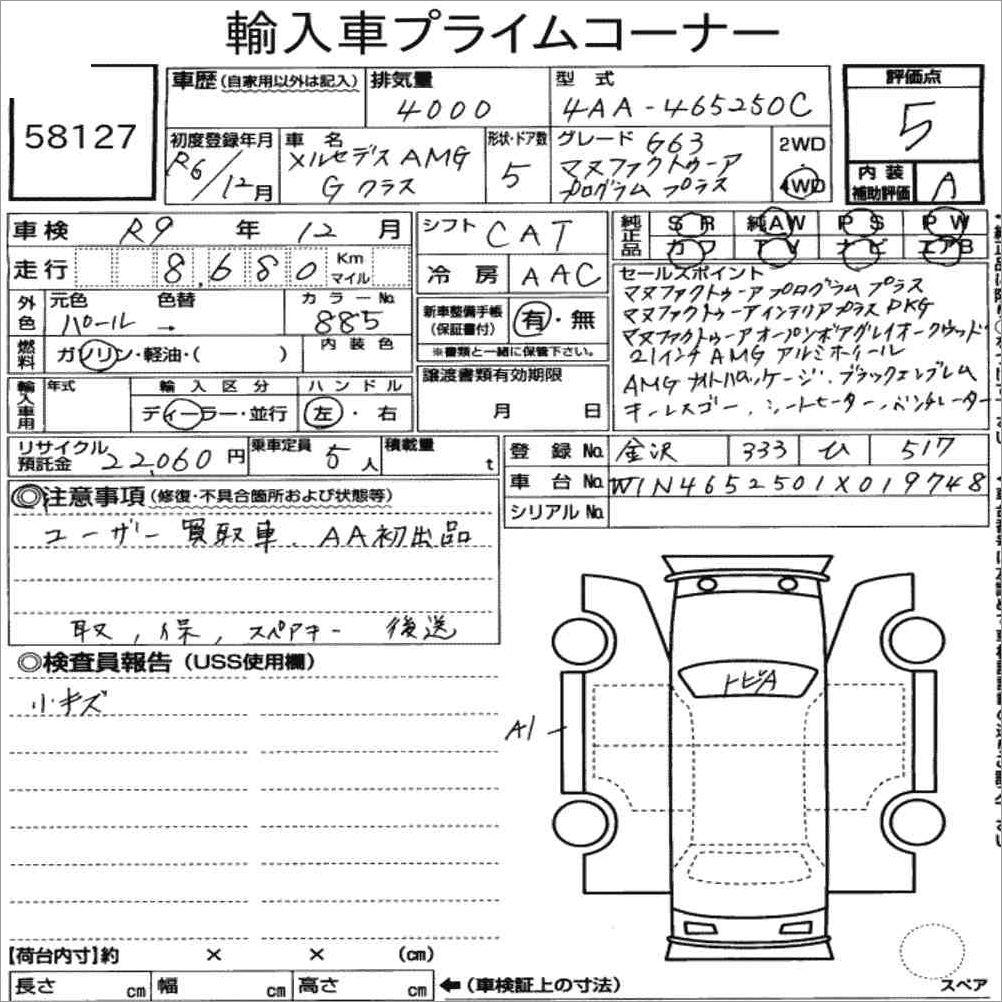 輸入車プライムコーナー
58127
車歴(自家用以外は記入)
排気量
4000
型式
4AA-465250C
評価点
5
初度登録年月
R6/12月
車名
メルセデスAMG
Gクラス
形状・ドア数
5
グレード G63
マヌファクトゥーア
プログラム プラス
2WD
・
4WD
内装
補助評価
A
車検 R9年 12月
シフト CAT
純正品
SR 純AW PS PW
カワ TV ナビ エアB
走行 8,680 Km
マイル
冷房 AAC
セールスポイント
マヌファクトゥーアプログラム プラス
マヌファクトゥーアインテリアプラスPKG
マヌファクトゥーアオープンポアグレイオークウッド
21インチ AMG アルミホイール
AMG ナイトパッケージ、ブラックエンブレム
キーレスゴー、シートヒーター、ベンチレーター
外色
元色 色替 カラーNo.
パール → 885
新車整備手帳
(保証書付)
有・無
※書類と一緒に保管下さい。
燃料
ガソリン・軽油・( )
内装色
譲渡書類有効期限
月 日
輸入車用
年式
輸入区分
ハンドル
ディーラー・並行
左・右
リサイクル
預託金 22,060円
乗車定員 5人
積載量 t
登録No. 金沢 333 ひ 517
車台No. W1N4652501X019748
シリアルNo.
◎注意事項(修復・不具合箇所および状態等)
ユーザー買取車、AA初出品
取,保,スペアキー 後送
◎検査員報告(USS使用欄)
小キズ
トビA
A1
【荷台内寸】約 × × (cm)
長さ cm 幅 cm 高さ cm ←(車検証上の寸法)
スペア